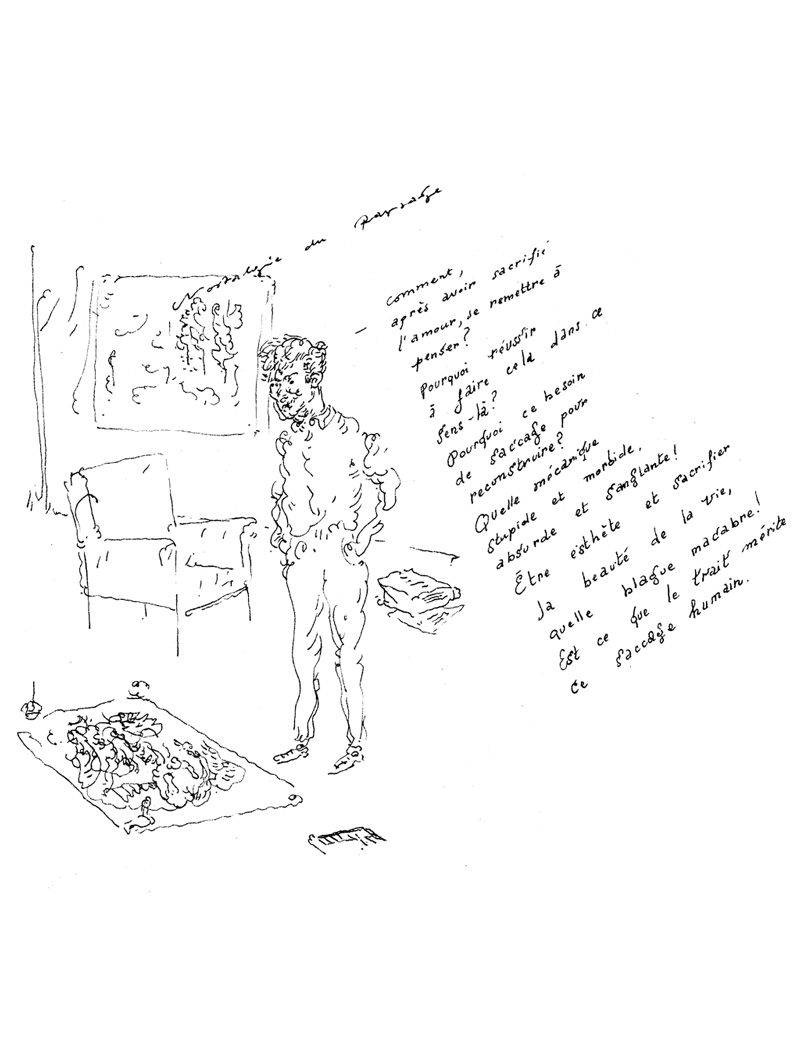 Nostalgie du paysage
— comment,
après avoir sacrifié
l'amour, se remettre à
penser?
Pourquoi réussir
à faire cela dans ce
sens-là?
Pourquoi ce besoin
de saccage pour
reconstruire?
Quelle mécanique
stupide et morbide,
absurde et sanglante!
Être esthète et sacrifier
la beauté de la vie,
quelle blague macabre!
Est ce que le trait mérite
ce saccage humain.